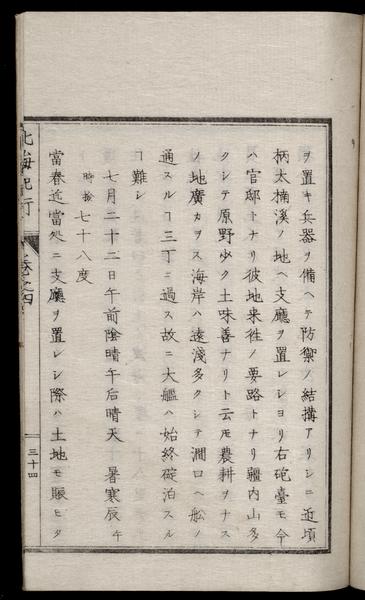 ヲ置キ兵器ヲ備ヘテ防禦ノ結搆アリシニ近頃
柄太楠溪ノ地ヘ支廳ヲ置レシヨリ右砲臺モ今
ハ官邸トナリ彼地来徃ノ要路トナリ疆内山多
クシテ原野少ク土味善ナリト云𪜈農耕ヲナス
ノ地廣カラス海岸ハ遠淺多クシテ澗口ヘ舩ノ
通スルヿ三丁ニ過ス故ニ大艦ハ始終碇泊スル
ヿ難シ
七月二十二日午前陰晴午后晴天 暑寒辰午
時拾七十八度
當春近當処ニ支廳ヲ置レシ際ハ土地モ賑ヒタ
北海紀行
巻之四
三十四